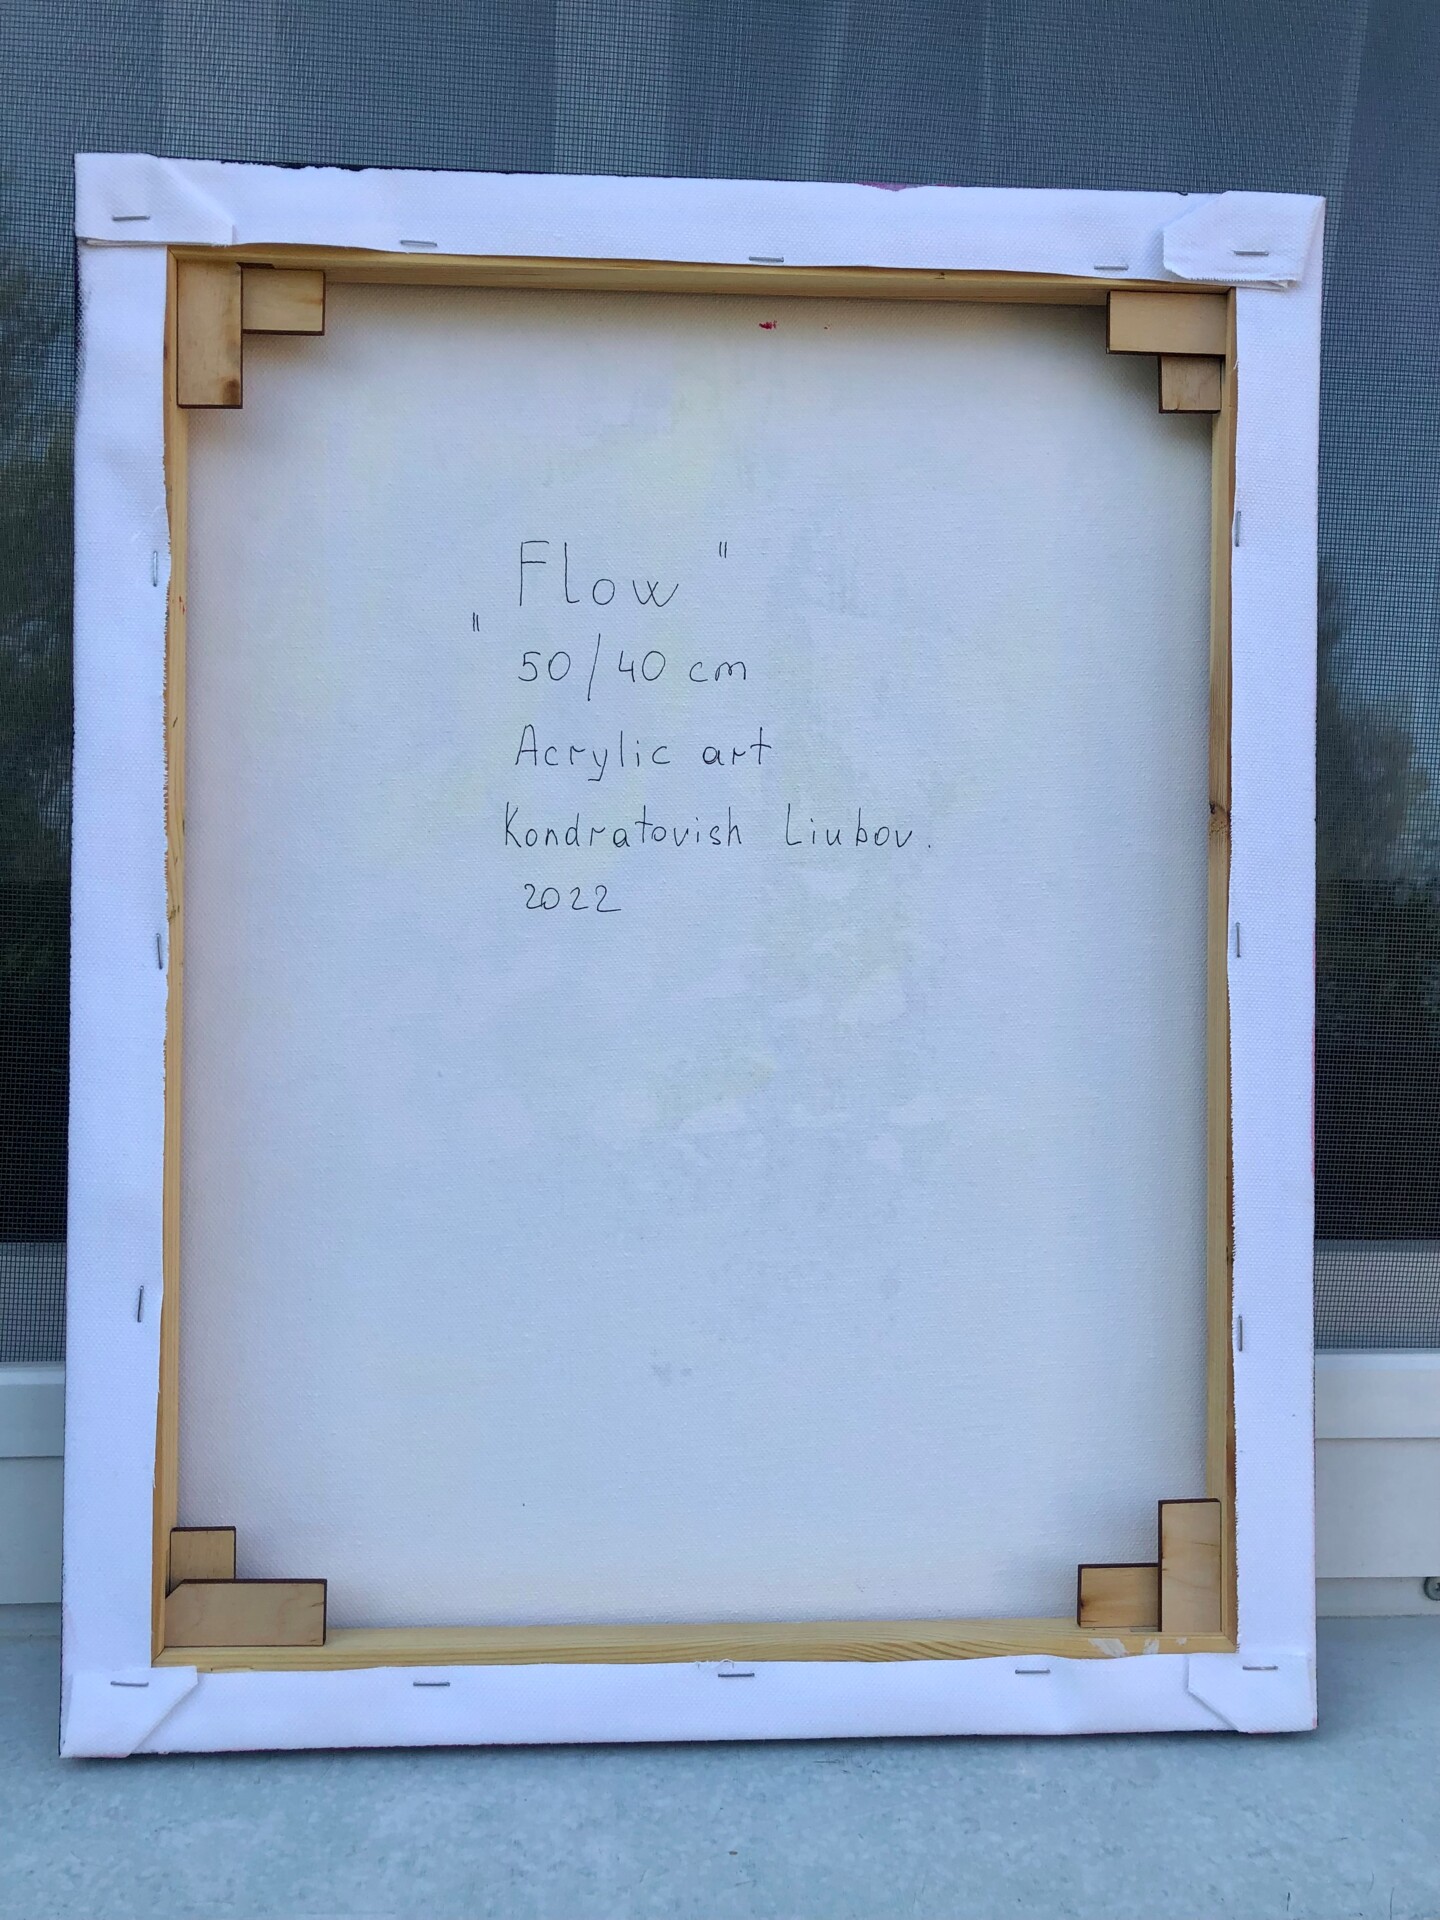 „Flow"
50/40 cm
Acrylic art
Kondratovish Liubov.
2022